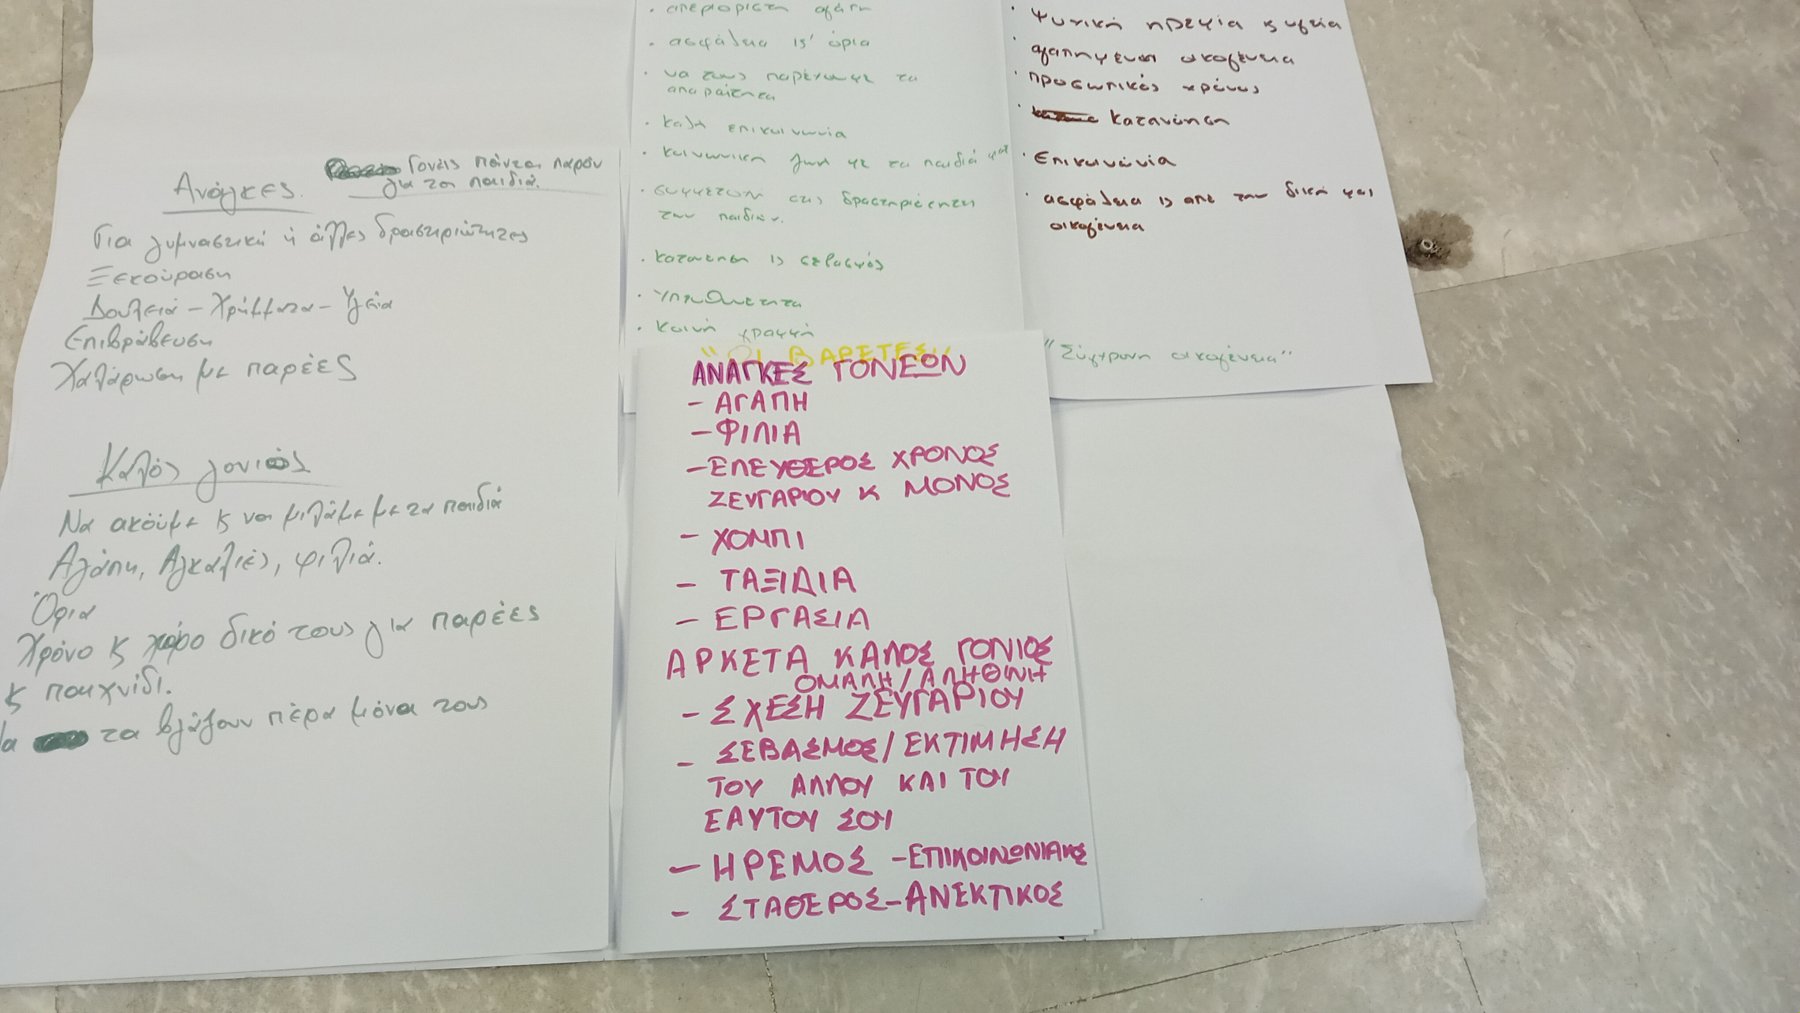 Ανάγκες.
Γονείς πάντα παρόν
για τα παιδιά.
Για γυμναστική ή άλλες δραστηριότητες
Ξεκούραση
Δουλειά - Χρήματα - Υγεία
Επιβράβευση
Χαλάρωση με παρέες
Καλός γονιός
Να ακούμε κ να μιλάμε με τα παιδιά
Αγάπη, Αγκαλιές, φιλιά.
Όρια
Χρόνο κ χώρο δικό τους για παρέες
κ παιχνίδι.
Να τα βγάζουν πέρα μόνα τους
· απεριόριστη αγάπη
· ασφάλεια κ' όρια
· να τους παρέχουμε τα
απαραίτητα
· καλή επικοινωνία
· κοινωνική ζωή με τα παιδιά μας
· συμμετοχή στις δραστηριότητες
των παιδιών.
· κατανόηση κ σεβασμός
· Υπευθυνότητα
· Κοινή γραμμή
· Ψυχική ηρεμία κ υγεία
· αγαπημένη οικογένεια
· προσωπικός χρόνος
· Κατανόηση
· Επικοινωνία
· ασφάλεια κ από την δική μας
οικογένεια
"Σύγχρονη οικογένεια"
"ΟΙ ΒΑΡΕΤΕΣ"
ΑΝΑΓΚΕΣ ΓΟΝΕΩΝ
- ΑΓΑΠΗ
- ΦΙΛΙΑ
- ΕΛΕΥΘΕΡΟΣ ΧΡΟΝΟΣ
ΖΕΥΓΑΡΙΟΥ Κ ΜΟΝΟΣ
- ΧΟΜΠΙ
- ΤΑΞΙΔΙΑ
- ΕΡΓΑΣΙΑ
ΑΡΚΕΤΑ ΚΑΛΟΣ ΓΟΝΙΟΣ
ΟΜΑΛΗ/ΑΛΗΘΙΝΗ
- ΣΧΕΣΗ ΖΕΥΓΑΡΙΟΥ
- ΣΕΒΑΣΜΟΣ/ΕΚΤΙΜΗΣΗ
ΤΟΥ ΑΛΛΟΥ ΚΑΙ ΤΟΥ
ΕΑΥΤΟΥ ΣΟΥ
- ΗΡΕΜΟΣ - ΕΠΙΚΟΙΝΩΝΙΑΚΟΣ
- ΣΤΑΘΕΡΟΣ - ΑΝΕΚΤΙΚΟΣ